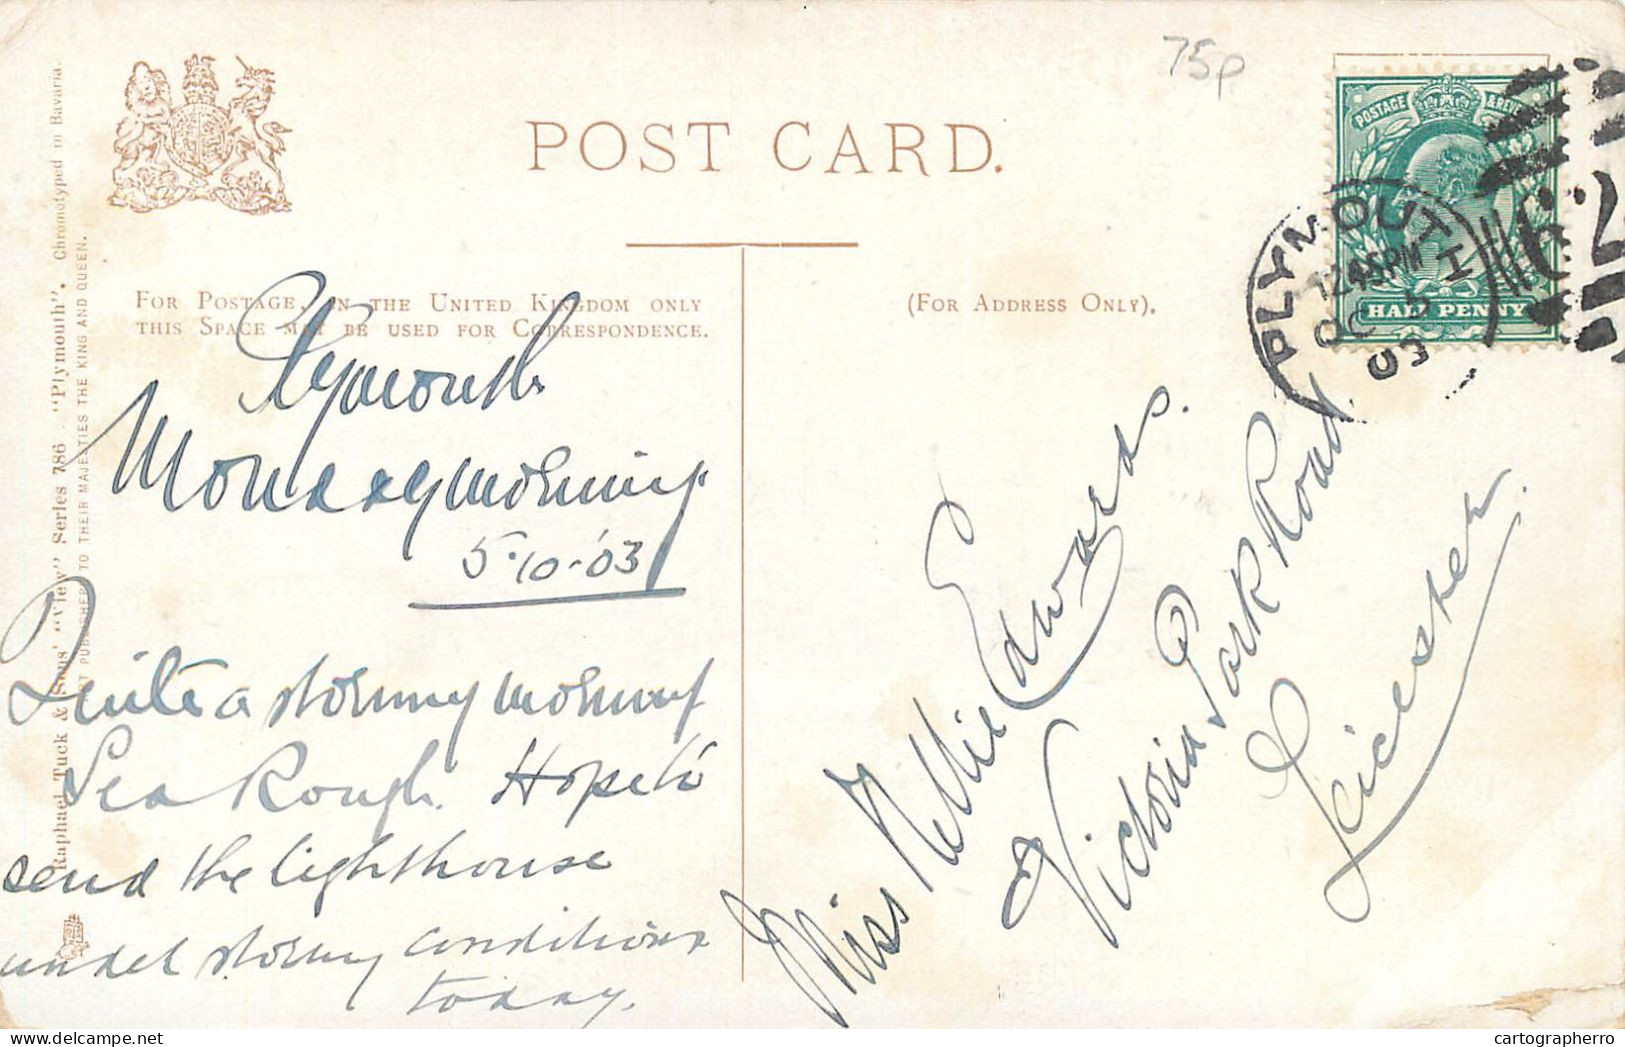 75p
POST CARD.
POSTAGE & REV
HALF PENNY
PLYMOUTH
12.45PM
OC 5
03
62
FOR POSTAGE IN THE UNITED KINGDOM ONLY
THIS SPACE MAY BE USED FOR CORRESPONDENCE.
(FOR ADDRESS ONLY).
Plymouth
Monday morning.
5.10.'03
Quite a stormy morning
Sea Rough. Hope to
send the lighthouse
under stormy conditions
today.
Miss Nellie Edwards.
Victoria Park Road
Leicester.
Raphael Tuck & Sons' "View" Series 786. "Plymouth". Chromotyped in Bavaria.
ART PUBLISHERS TO THEIR MAJESTIES THE KING AND QUEEN.
cartographerro